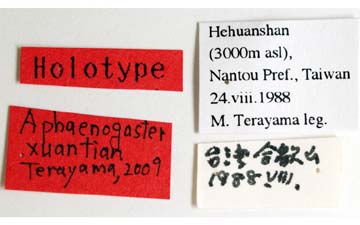 Holotype
Aphaenogaster
xuantian
Terayama, 2009
Hehuanshan
(3000m asl),
Nantou Pref., Taiwan
24.viii.1988
M. Terayama leg.
台湾 合歓山
1988. VIII.